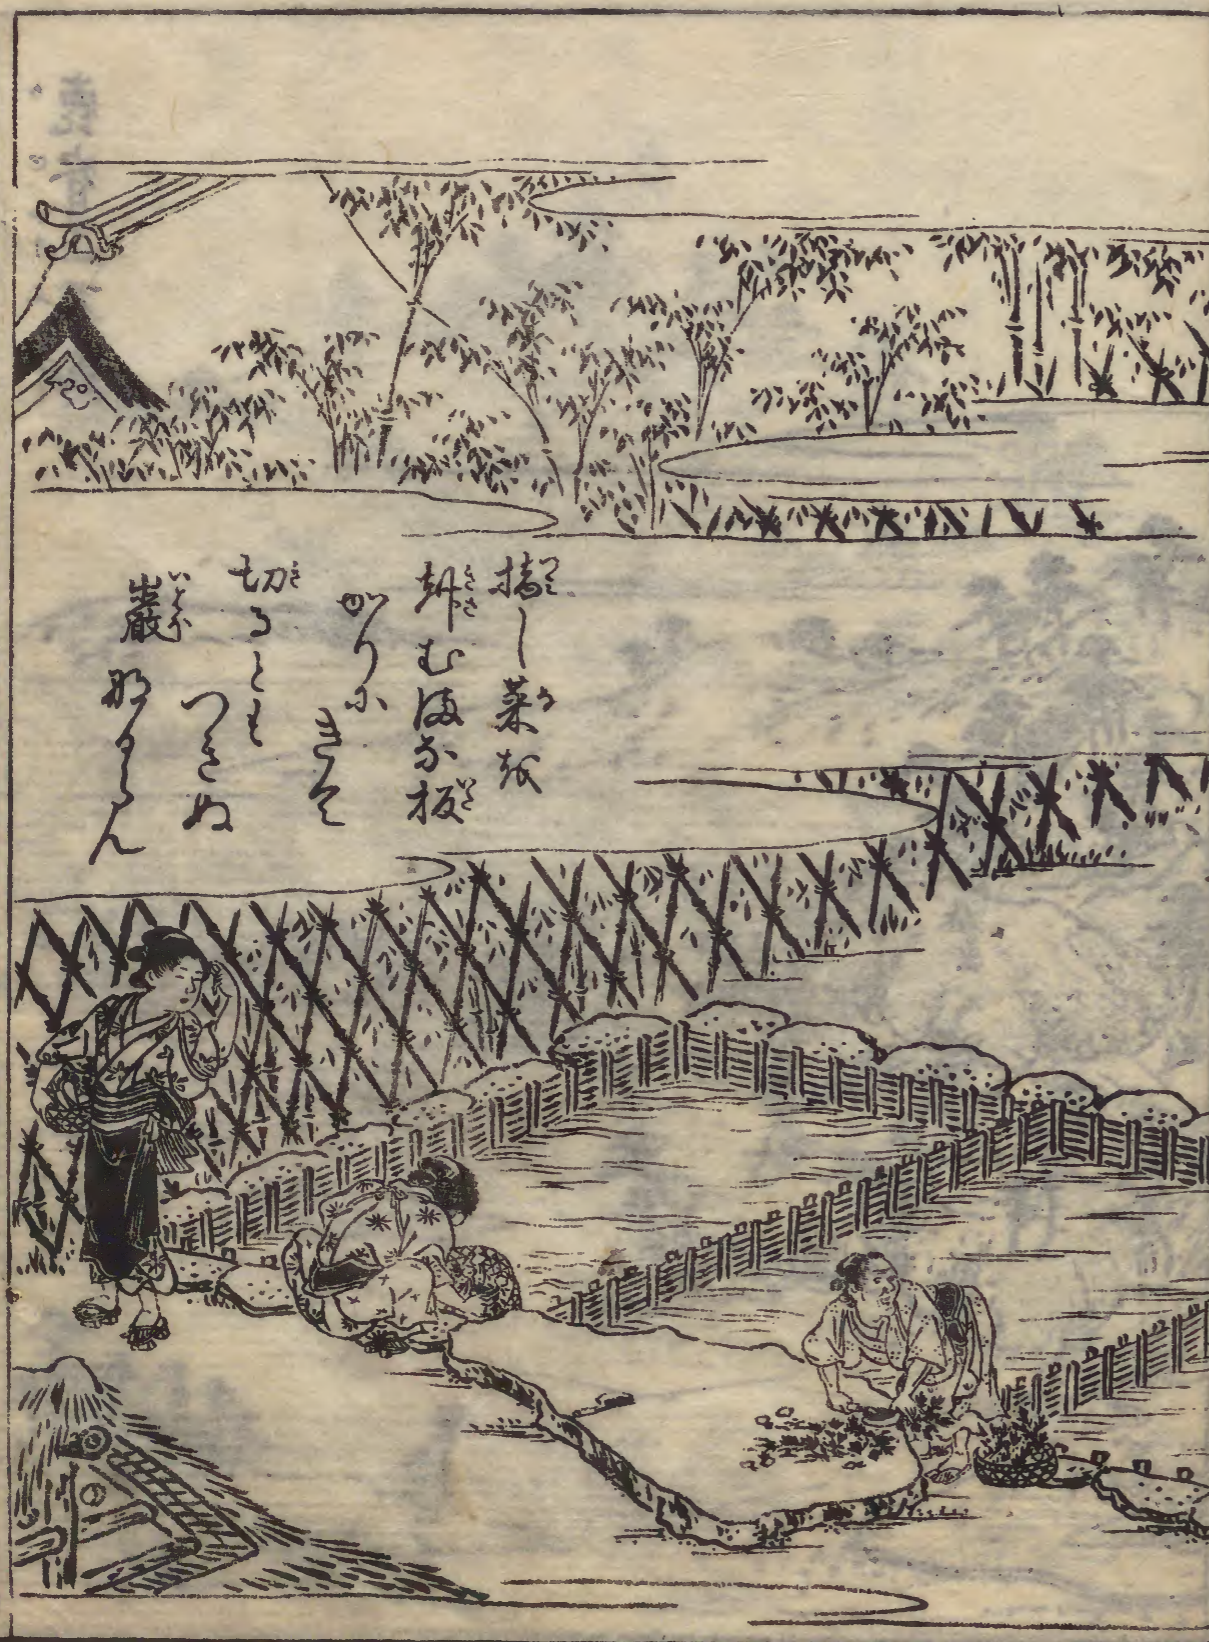 摘し菜を
刻むまな板
かりに
きて
切るとも
つきぬ
巌なるらん